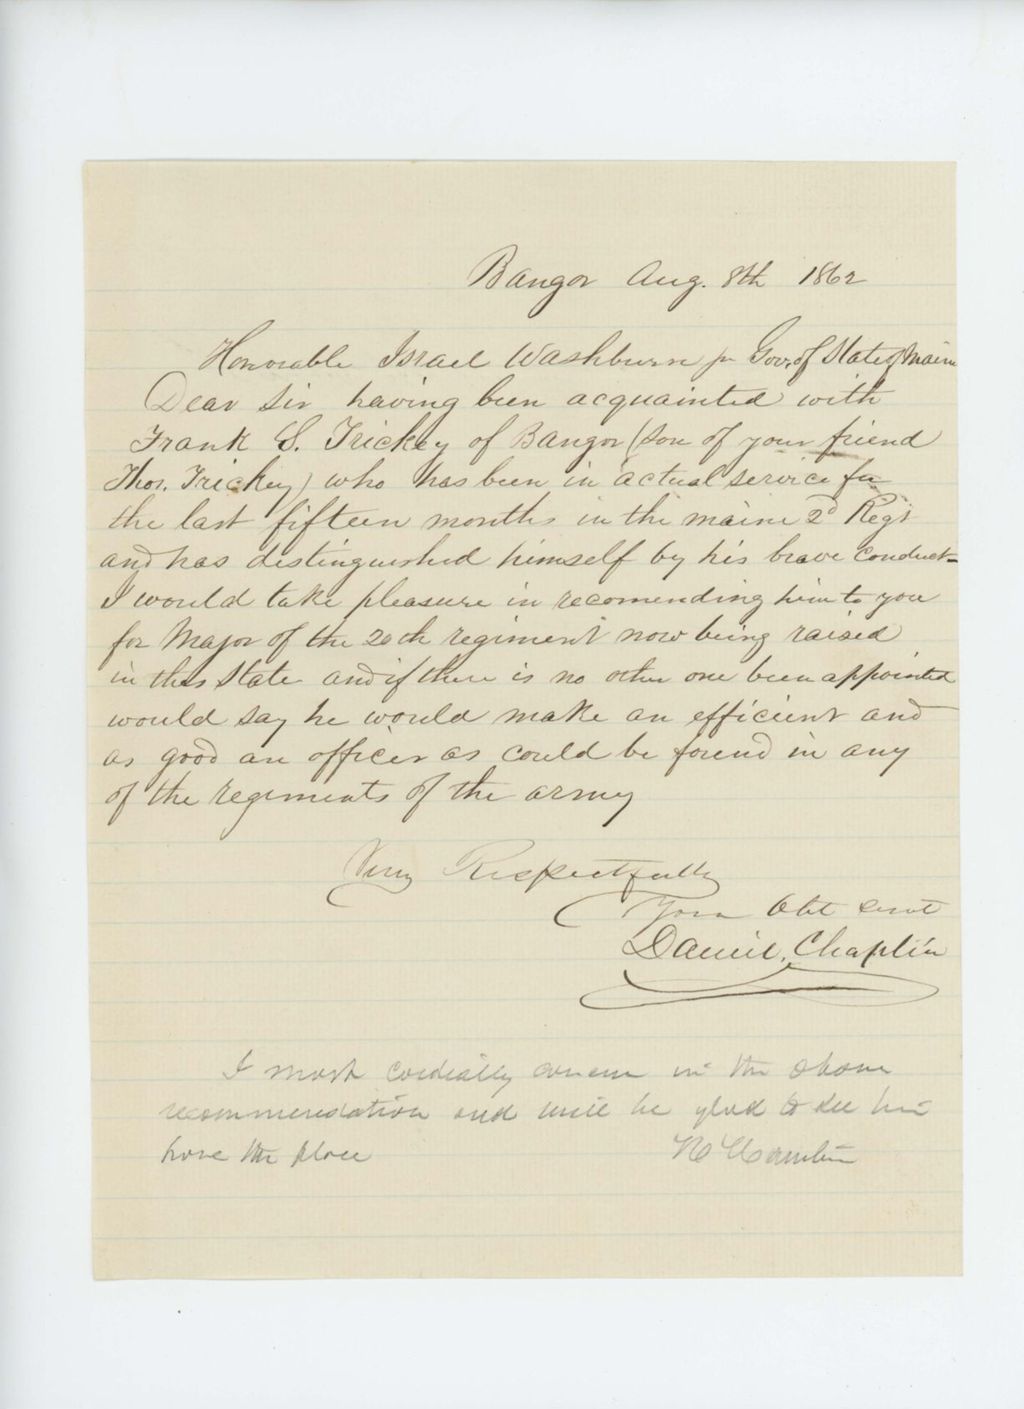 Bangor Aug. 8th 1862
Honorable Israel Washburn jr Gov. of State of Maine
Dear Sir having been acquainted with
Frank S. Trickey of Bangor (son of your friend
Thos. Trickey) who has been in actual service for
the last fifteen months in the maine 2d Regt
and has distinguished himself by his brave conduct
I would take pleasure in recomending him to you
for Major of the 20th regiment now being raised
in this State and if there is no other one been appointed
would say he would make an efficient and
as good an officer as could be found in any
of the regiments of the army
Very Respectfully
Your Obt Servt
Daniel Chaplin
I most cordially concur in the above
recommendation and will be glad to see him
have the place
H Hamlin